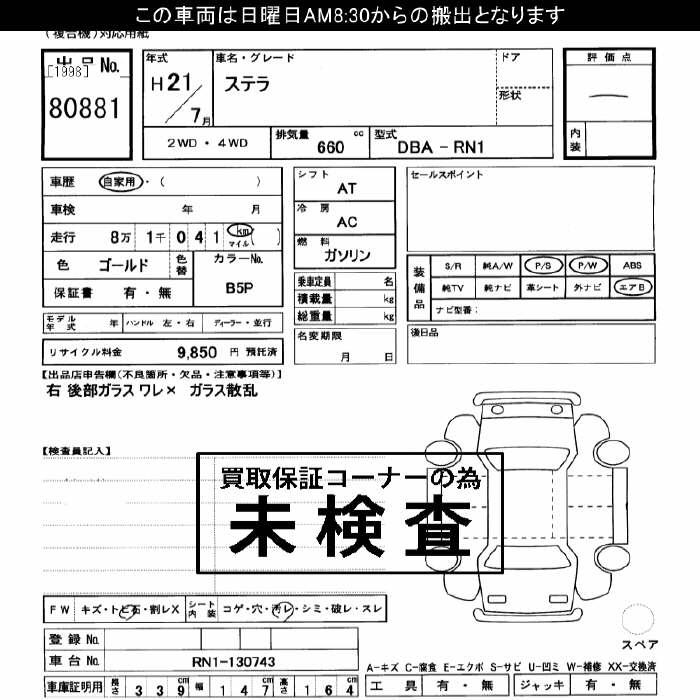 この車両は日曜日AM8:30からの搬出となります
(複合機)対応用紙
出品No.
[1998]
80881
年式
H21/7月
車名・グレード
ステラ
ドア
形状
評価点
内装
2WD・4WD
排気量 660 cc
型式 DBA-RN1
車歴 自家用・( )
車検 年 月
走行 8万 1千 0 4 1 km マイル ( )
色 ゴールド 色替
カラーNo. B5P
保証書 有・無
シフト AT
冷房 AC
燃料 ガソリン
乗車定員 名
積載量 kg
総重量 kg
セールスポイント
装備品
S/R 純A/W P/S P/W ABS
純TV 純ナビ 革シート 外ナビ エアB
ナビ型番:
モデル年式 年 ハンドル 左・右 ディーラー・並行
名変期限 月 日
後日品
リサイクル料金 9,850 円 預託済
【出品店申告欄(不良箇所・欠品・注意事項等)】
右 後部ガラス ワレ× ガラス散乱
【検査員記入】
買取保証コーナーの為
未検査
FW キズ・トビ石・割レX シート内装 コゲ・穴・汚レ・シミ・破レ・スレ
登録No.
車台No. RN1-130743
車庫証明用 長さ 339cm 幅 147cm 高さ 164cm
スペア
A-キズ C-腐食 E-エクボ S-サビ U-凹ミ W-補修 XX-交換済
工具 有・無 ジャッキ 有・無